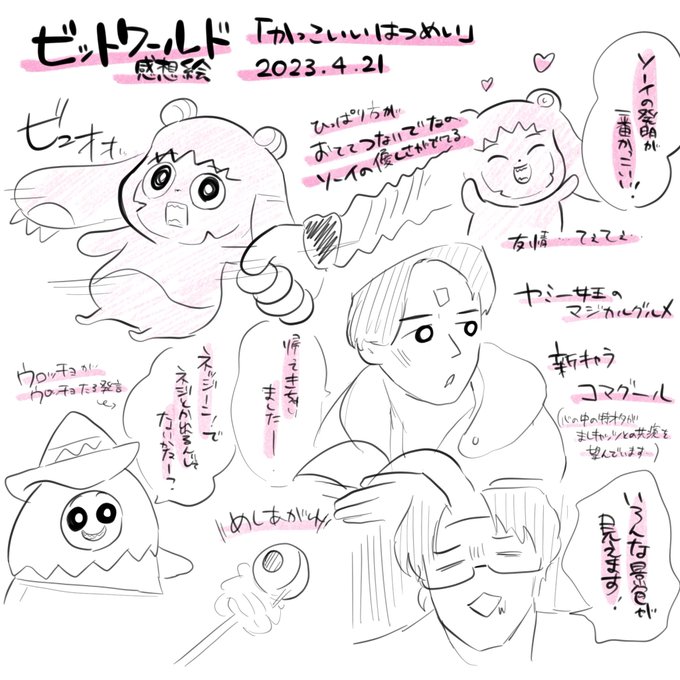 ビットワールド
感想絵
「かっこいいはつめい」
2023.4.21
ビュオォ
ひっぱり方が
おててつないでなの
ソーイの優しさがでてる
ソーイの発明が
一番かっこいい!
友情……てぇてぇ…
ヤミー女王の
マジカルグルメ
新キャラ
コマグール
(心の中の特オタが
望んでいます)
帰ってきちゃい
ました!
ウロッチョが
ウロッチョたる発言
ネッジーン!で
ネジとか出るんじゃ
ないかなー?
めしあがれ
いろんな景色が
見えます!